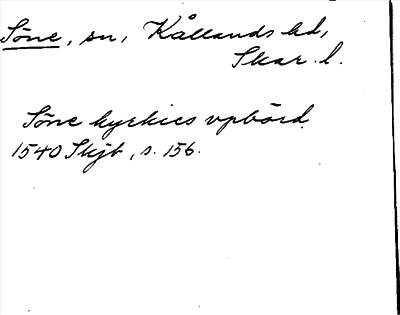 Söne, sn, Kållands hd,
Skar. l.
Söne kyrkies vpbörd
1540 Skjb, s. 156.